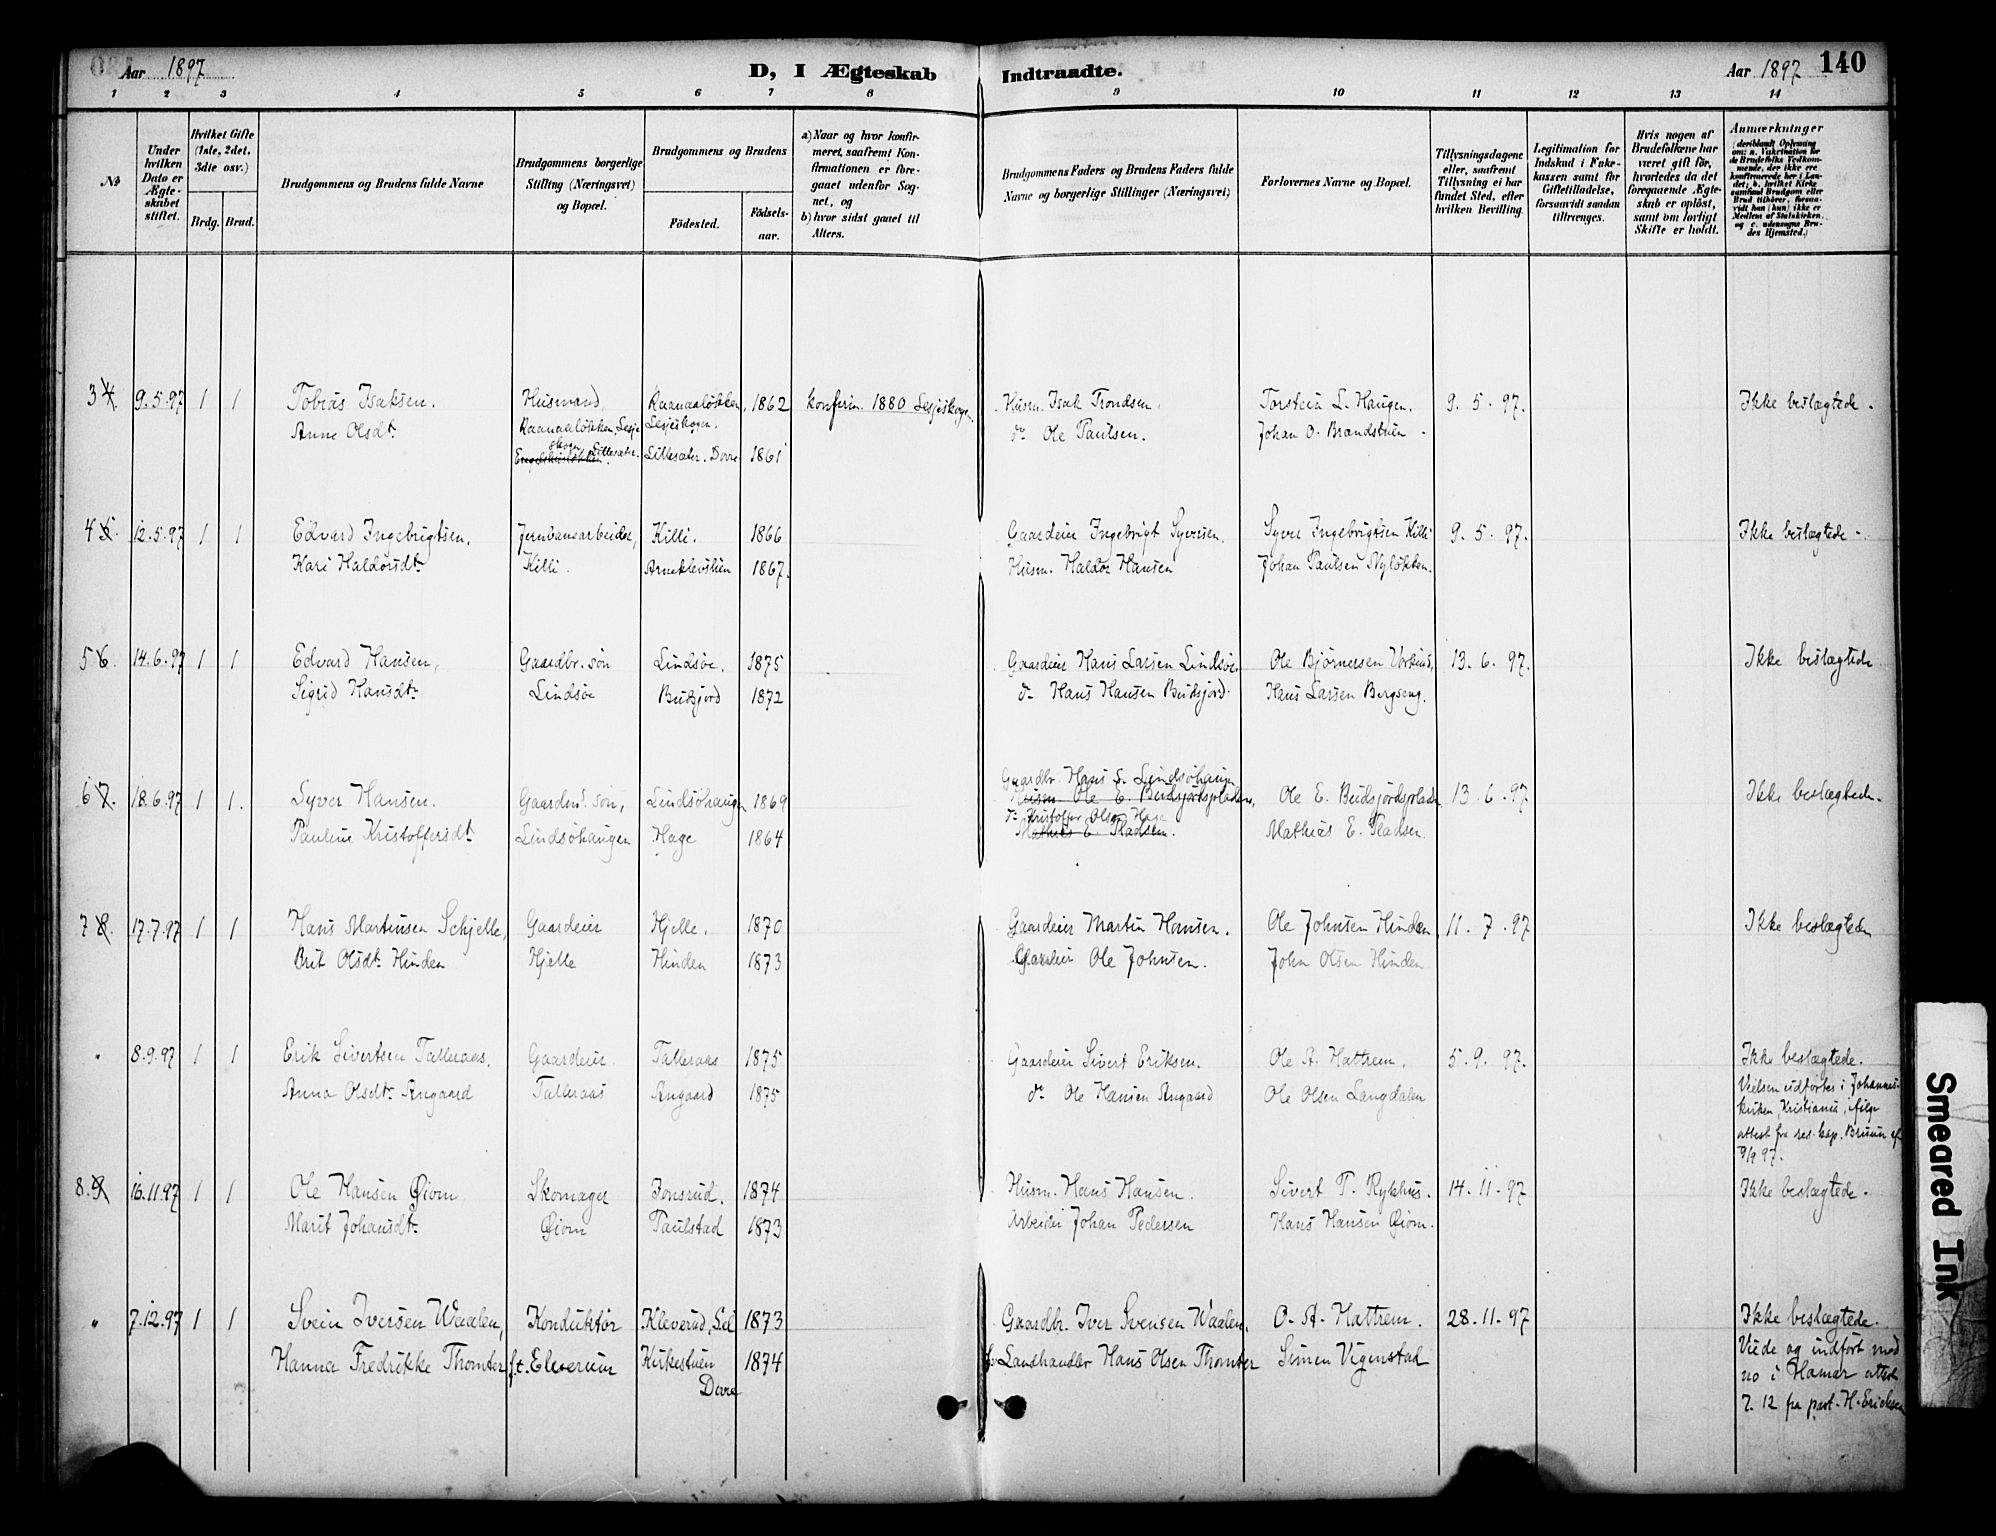 Aar 1897
D, I Ægteskab Indtraadte.
Aar 1897 140
1 2 3 4 5 6 7 8 9 10 11 12 13 14
No
Under hvilken Dato er Ægteskabet stiftet.
Hvilket Gifte (1ste, 2det, 3die osv.)
Brdg. Brud.
Brudgommens og Brudens fulde Navne
Brudgommens borgerlige Stilling (Næringsvei) og Bopæl.
Brudgommens og Brudens
Födested.
Födselsaar.
a) Naar og hvor konfirmeret, saafremt Konfirmationen er foregaaet udenfor Sognet, og
b) hvor sidst gaaet til Alters.
Brudgommens Faders og Brudens Faders fulde Navne og borgerlige Stillinger (Næringsvei)
Forlovernes Navne og Bopæl.
Tillysningsdagene eller, saafremt Tillysning ei har fundet Sted, efter hvilken Bevilling.
Legitimation for Indskud i Enkekassen samt for Giftetilladelse, forsaavidt saadan tiltrænges.
Hvis nogen af Brudefolkene har været gift för, hvorledes da det foregaaende Ægteskab er oplöst, samt om lovligt Skifte er holdt.
Anmærkninger (deriblandt Oplysning om: a. Vakcination for de Brudefolks Vedkommende, der ikke ere konfirmerede her i Landet; b. hvilket Kirke samfund Brudgom eller Brud tilhører, forsaavidt han (hun) ikke er Medlem af Statskirken, og c. udensogns Brudes Hjemsted.)
3 4. 9.5.97 1 1 Tobias Isaksen. Husmand, Raanaaløkken, 1862 konfirm. 1880 Lesjeskogen. Husm. Isak Trondsen, Torstein L. Haugen. 9. 5. 97. Ikke beslægtede.
Anne Olsdt. Raanaaløkken, Lesjeskogen Lesjeskogen. do Ole Paulsen. Johan O. Brandstuen.
Lillesæter. Lillesæter. Dovre 1861
4 5. 12.5.97 1 1 Edvard Ingebrigtsen, Jernbanearbeider, Killi. 1866 Gaardeier Ingebrigt Syversen. Syver Ingebrigtsen Killi 9. 5. 97. Ikke beslægtede.
Kari Haldorsdt. Killi. 1867. Husm. Haldor Hansen Johan Paulsen Nyløkken.
5 6. 14.6.97 1 1 Edvard Hansen, Gaardbr. søn Lindsøe. 1875 Gaardeier Hans Larsen Lindsøe. Ole Bjørnersen 13. 6. 97. Ikke beslægtede
Sigrid Hansdt. Lindsøe Budsjord 1872 do Hans Hansen Budsjord. Hans Larsen Bergseng.
6 7. 18.6.97 1 1. Syver Hansen. Gaardm. søn, Lindsøhaugen 1869 Gaardbr. Hans S. Lindsøhaugen
Husm. Ole E. Budsjordspladsen, Ole E. Budsjordspladsen 13. 6. 97 Ikke beslægtede.
do Kristoffer Olsen Hage
Pauline Kristoffersdt. Lindsøhaugen Hage 1864 Mathias E. Pladsen. Mathias E. Pladsen.
7 8. 17.7.97 1 1 Hans Martinsen Schjelle, Gaardeier Hjelle. 1870 Gaardeier Martin Hansen. Ole Johnsen Hinden, 11. 7. 97 Ikke beslægtede
Brit Olsdt. Hinden Hjelle Hinden 1873 Gaardeier Ole Johnsen. John Olsen Hinden
" 8.9.97 1 1 Erik Sivertsen Talleraas. Gaardeier. Talleraas 1875 Gaardeier Sivert Eriksen. Ole A. Hattrem. 5. 9. 97. Ikke beslægtede.
Anna Olsdt. Angaard Talleraas Angaard 1875 do Ole Hansen Angaard Ole Olsen Langdalen Vielsen udførtes i Johannes-
kirken, Kristiania, ifølge
attest fra res. kap. Bruun af
8/9 97.
8. 9 16.11.97 1 1 Ole Hansen Øiom Skomager Jonsrud. 1874 Husm. Hans Hansen. Sivert P. Rykhus. 14. 11. 97 Ikke beslægtede.
Marit Johansdt. Øiom Paulstad 1873 Arbeider Johan Pedersen Hans Hansen Øiom.
" 7.12.97 1 1 Svein Iversen Waalen, Konduktør Kleverud, Sel 1873 Gaardbr. Iver Svensen Waalen. O. A. Hattrem. 28. 11. 97 Ikke beslægtede.
Hanna Fredrikke Thomter f.t. Elverum Kirkestuen Dovre 1874 Landhandler Hans Olsen Thomter Simen Vigenstad Viede og indført med
no i Hamar attest
7. 12 fra past. H. Ericksen
Smeared Ink